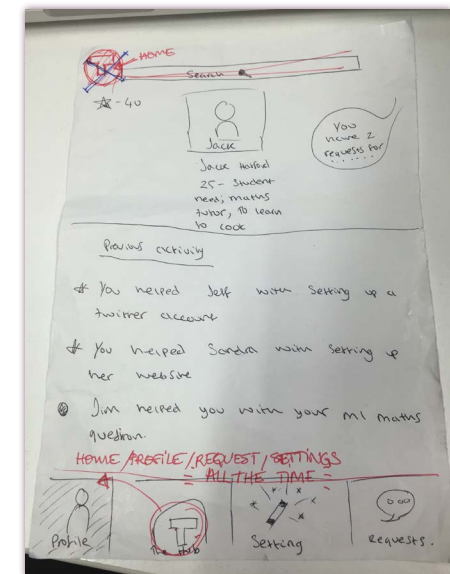 HOME
Search
- 40
Jack
You
have 2
requests for
Jack
25 - Student
need, maths
tutor, to learn
to cook
Previous activity
You helped Jeff with setting up a
twitter account
You helped Sandra with setting up
her website
Jim helped you with your m1 maths
question.
HOME / PROFILE / REQUEST / SETTINGS
= ALL THE TIME =
Profile
T
Hub
Setting
Requests.